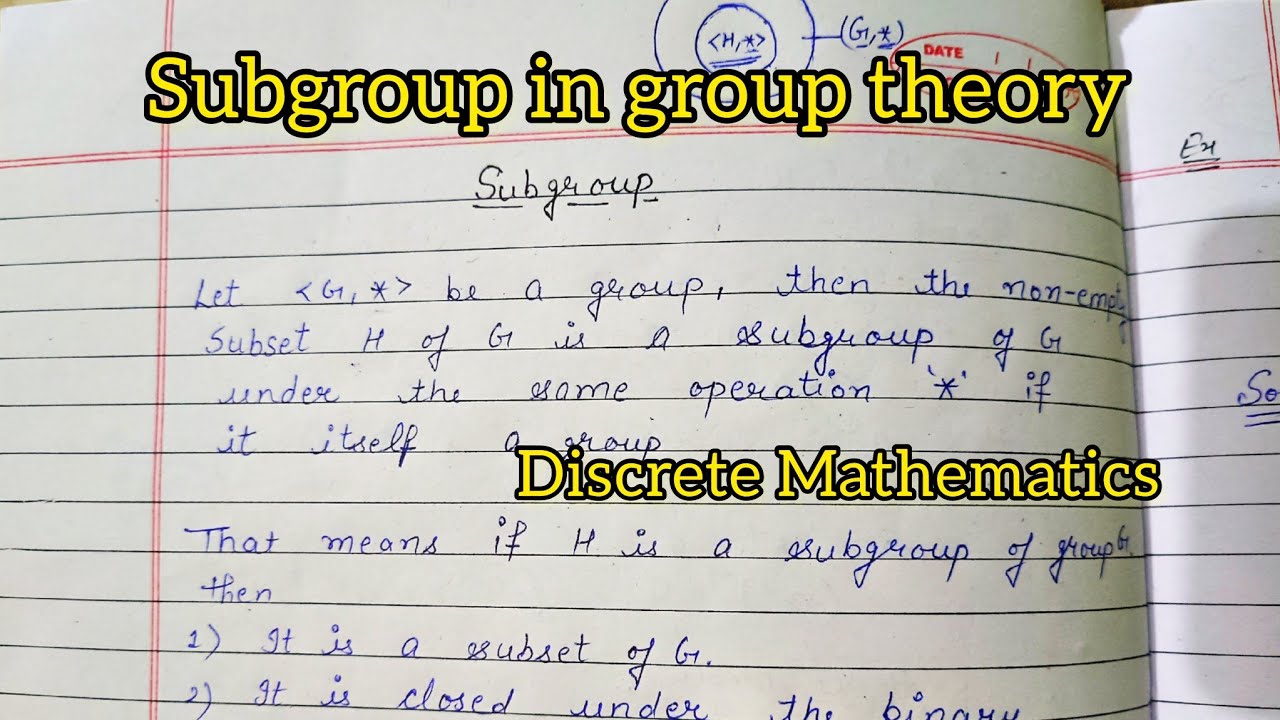 <H,*> (G,*)
DATE
Subgroup in group theory
Ex
Subgroup
Let <G,*> be a group, then the non-empty
Subset H of G is a subgroup of G
under the same operation '*' if
So
it itself a group
Discrete Mathematics
That means if H is a subgroup of group G.
then
1) It is a subset of G.
2) It is closed under the binary